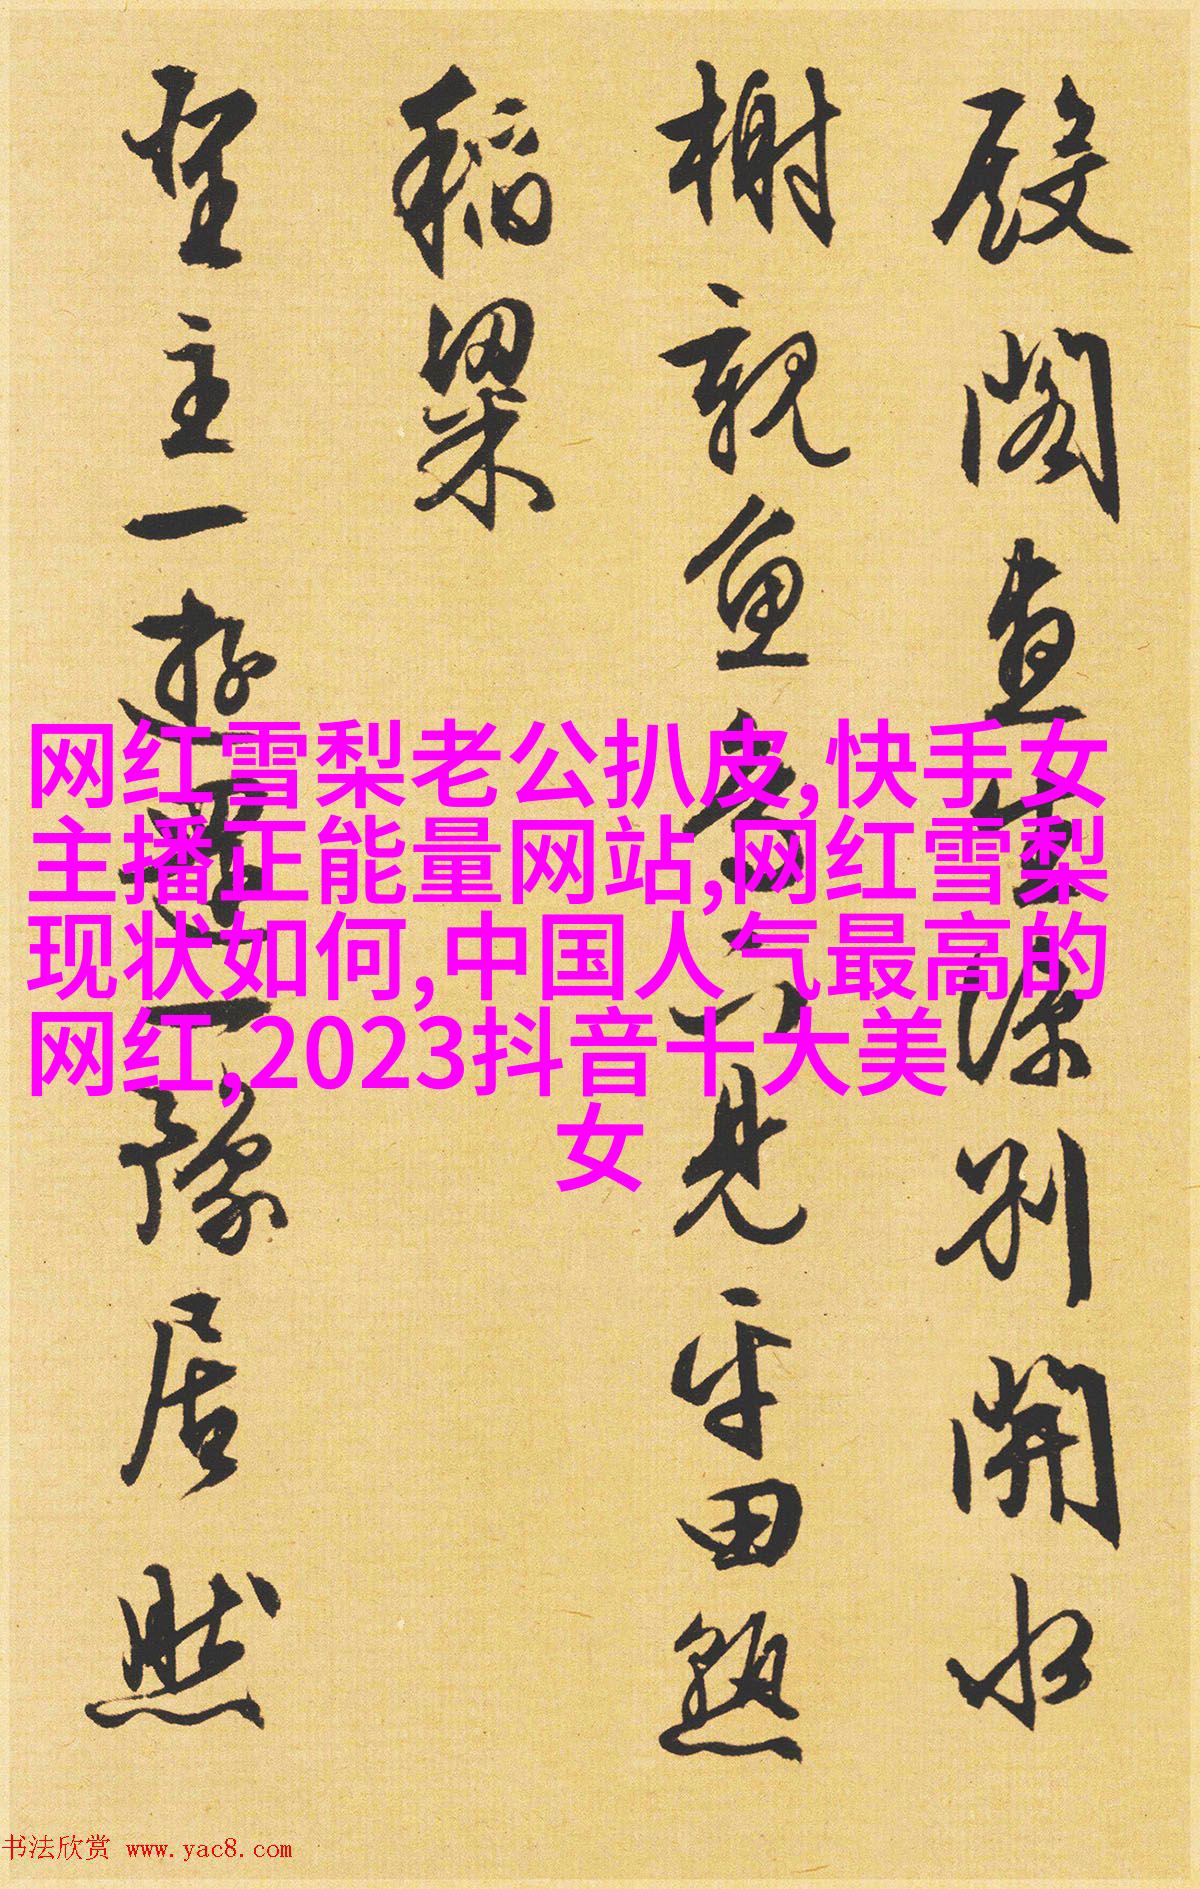 殿閣直源別開水
榭觀魚見平田熟
稻粱
聖主一遊一豫居然
网红雪梨老公扒皮,快手女
主播正能量网站,网红雪梨
现状如何,中国人气最高的
网红,2023抖音十大美
女
书法欣赏 www.yac8.com